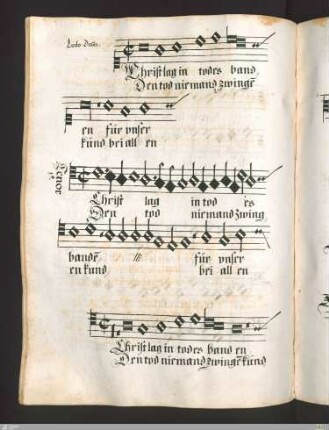 Christ lag in todes band
Den tod niemand zwingē
en für vnser
kund bei all en
Tenor
Christ lag in tod es
Den tod niemand zwing
bandē für vnser
en kund bei all en
Christ lag in todes band en
Den tod niemand zwingē kund